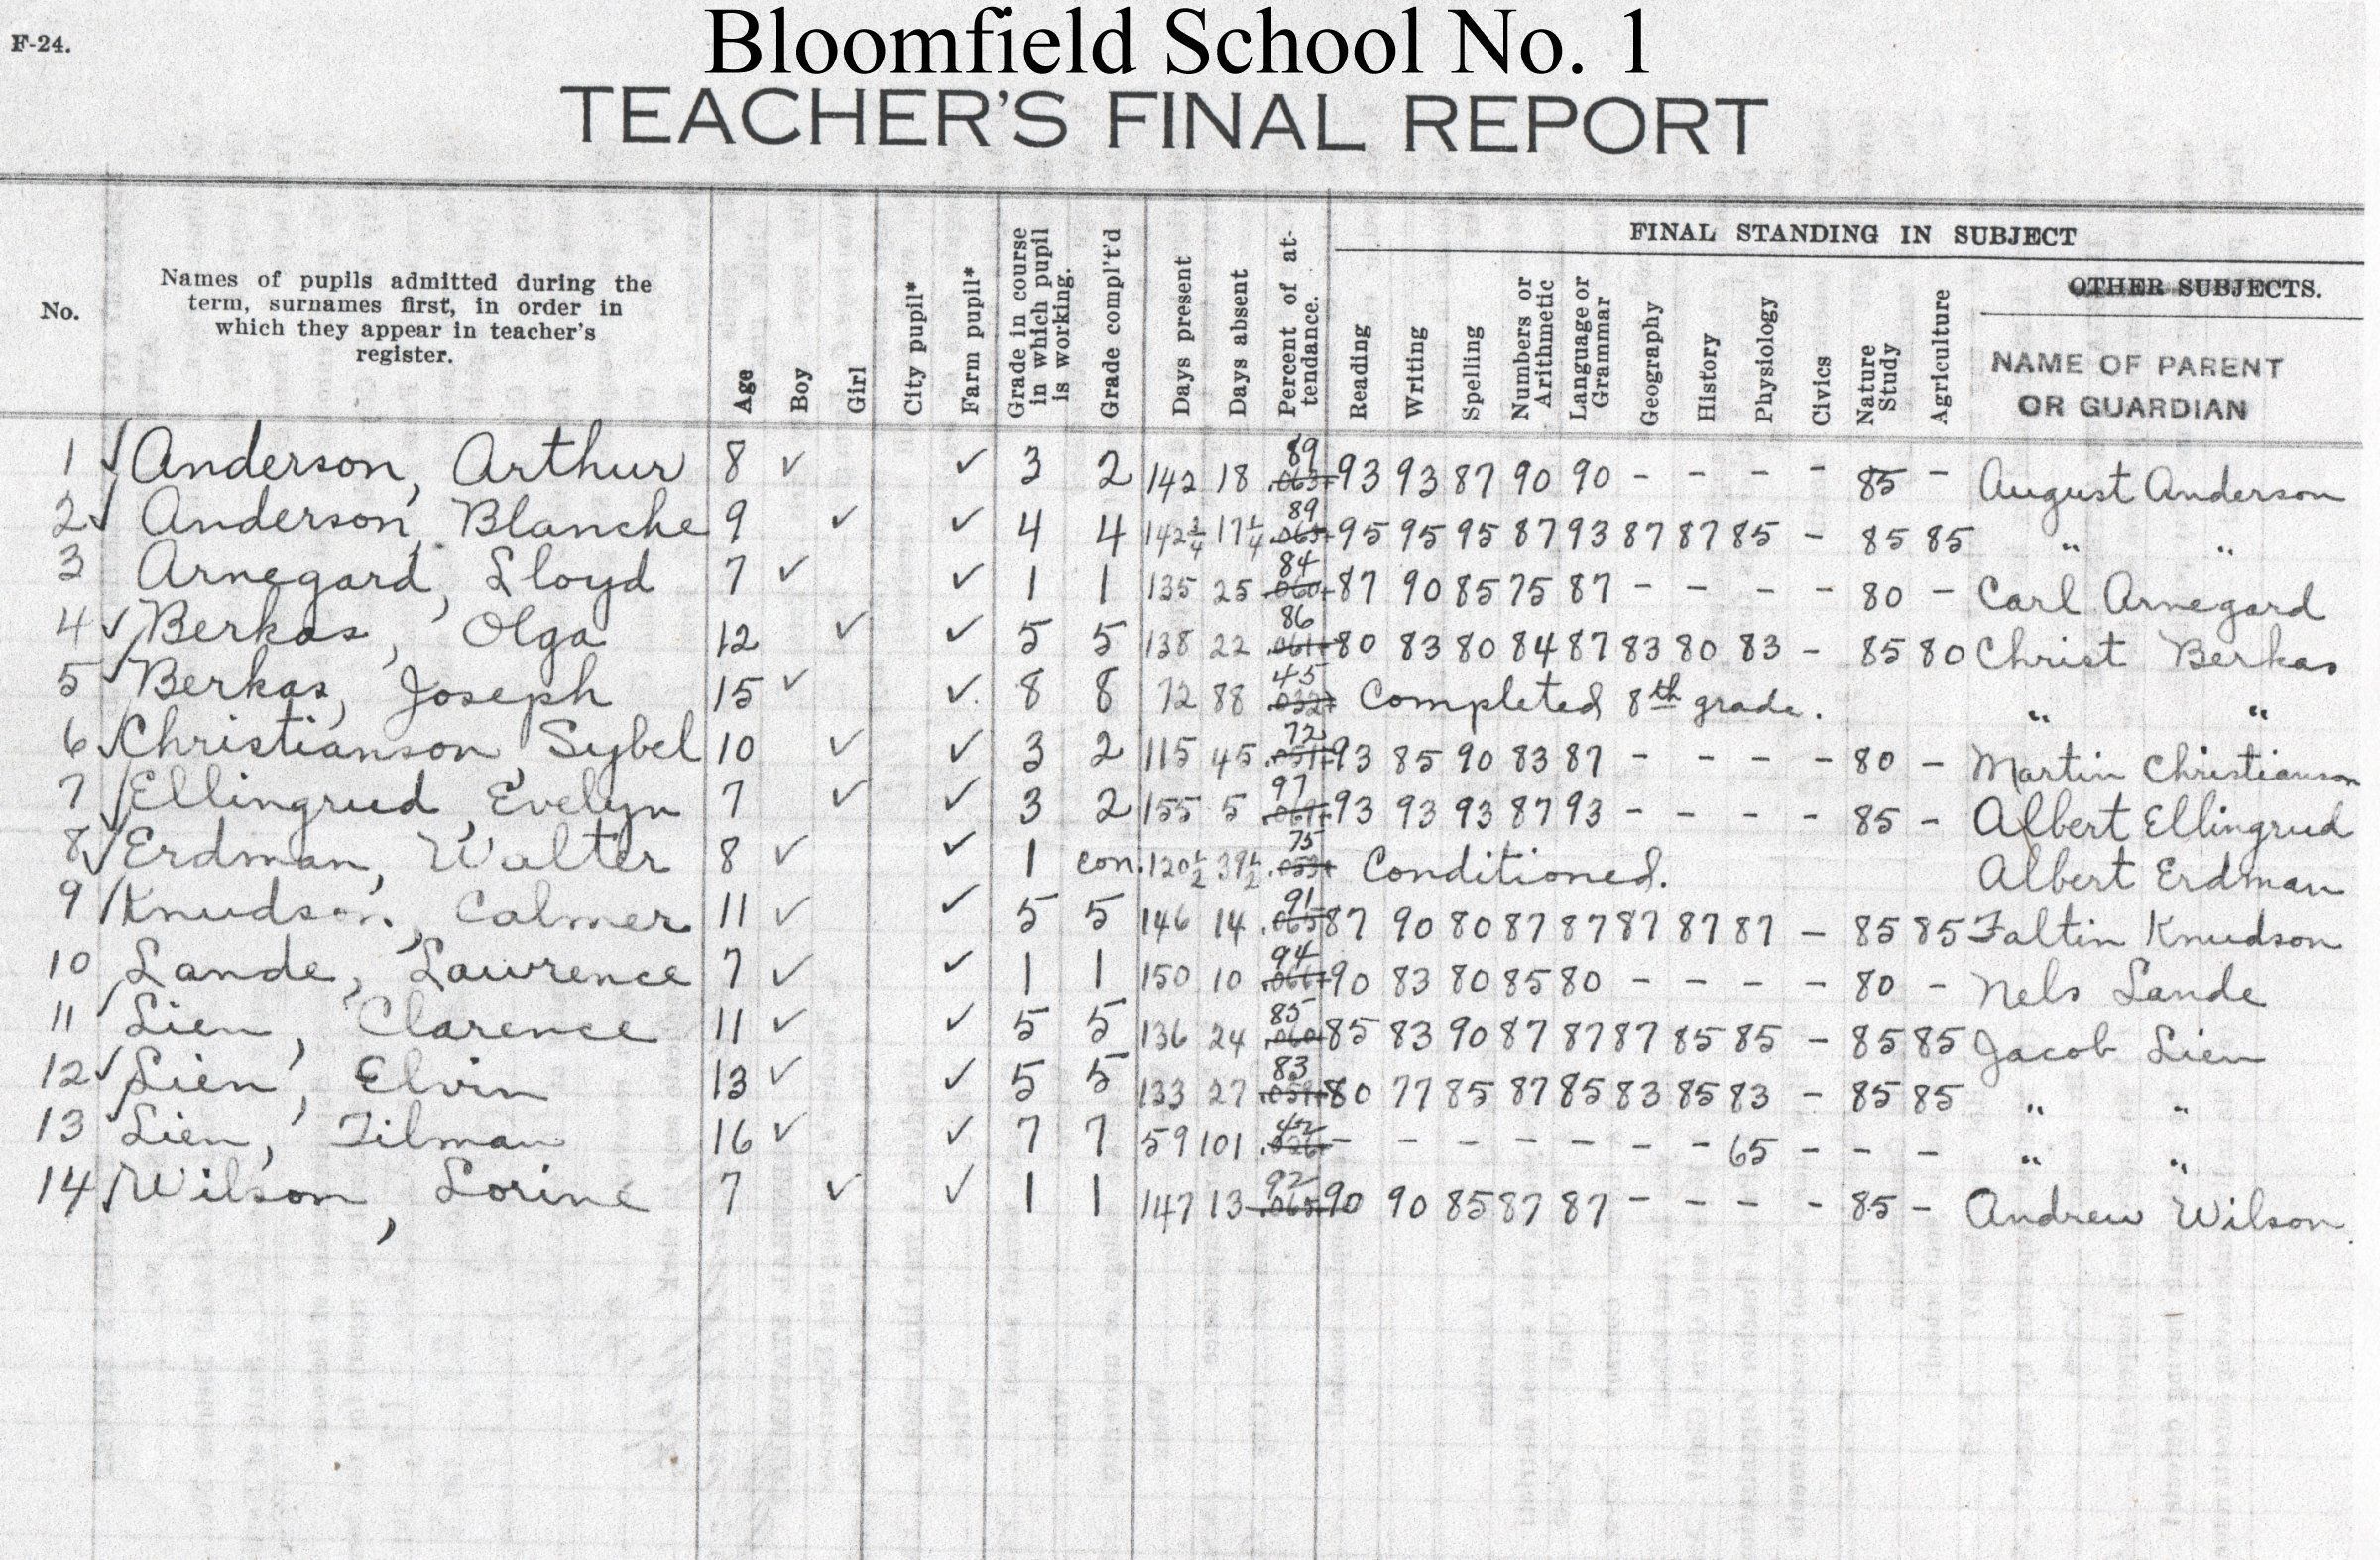 Bloomfield School No. 1
F-24.
TEACHER'S FINAL REPORT
No.
Names of pupils admitted during the
term, surnames first, in order in
which they appear in teacher's
register.
Age
Boy
Girl
City pupil*
Farm pupil*
Grade in course
in which pupil
is working.
Grade compl't'd
Days present
Days absent
Percent of at-
tendance.
FINAL STANDING IN SUBJECT
Reading
Writing
Spelling
Numbers or
Arithmetic
Language or
Grammar
Geography
History
Physiology
Civics
Nature
Study
Agriculture
OTHER SUBJECTS.
NAME OF PARENT
OR GUARDIAN
1 ✓ Anderson, Arthur 8 ✓ ✓ 3 2 142 18 89 .063+ 93 93 87 90 90 - - - - 85 - August Anderson
2 ✓ Anderson, Blanche 9 ✓ ✓ 4 4 142 3/4 17 1/4 89 95 95 95 87 93 87 87 85 - 85 85 " "
3 Arnegard, Lloyd 7 ✓ ✓ 1 1 135 25 84 .060+ 87 90 85 75 87 - - - - 80 - Carl Arnegard
4 ✓ Berkas, Olga 12 ✓ ✓ 5 5 138 22 86 .061+ 80 83 80 84 87 83 80 83 - 85 80 Christ Berkas
5 ✓ Berkas, Joseph 15 ✓ ✓ 8 8 72 88 45 .032+ Completed 8th grade. " "
6 ✓ Christianson, Sybel 10 ✓ ✓ 3 2 115 45 72 .051+ 93 85 90 83 87 - - - - 80 - Martin Christianson
7 ✓ Ellingrud, Evelyn 7 ✓ ✓ 3 2 155 5 97 93 93 93 87 93 - - - - 85 - Albert Ellingrud
8 ✓ Erdman, Walter 8 ✓ ✓ 1 con. 120 1/2 39 1/2 75 .053+ Conditioned. Albert Erdman
9 ✓ Knudson, Calmer 11 ✓ ✓ 5 5 146 14 91 .065 87 90 80 87 87 87 87 87 - 85 85 Faltin Knudson
10 Lande, Lawrence 7 ✓ ✓ 1 1 150 10 94 .066+ 90 83 80 85 80 - - - - 80 - Nels Lande
11 ✓ Lien, Clarence 11 ✓ ✓ 5 5 136 24 85 .060 85 83 90 87 87 87 85 85 - 85 85 Jacob Lien
12 ✓ Lien, Elvin 13 ✓ ✓ 5 5 133 27 83 .059+ 80 77 85 87 85 83 85 83 - 85 85 " "
13 Lien, Tilman 16 ✓ ✓ 7 7 59 101 42 .026+ - - - - - - - 65 - - - " "
14 ✓ Wilson, Lorine 7 ✓ ✓ 1 1 147 13 92 .065 90 90 85 87 87 - - - - 85 - Andrew Wilson